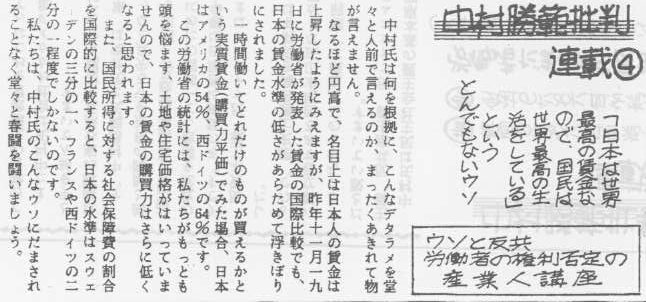 中村勝範批判
連載④
「日本は世界
最高の賃金な
ので、国民は
世界最高の生
活をしている」
という
とんでもないウソ
ウソと反共
労働者の権利否定の
産業人講座
中村氏は何を根拠に、こんなデタラメを堂
々と人前で言えるのか、まったくあきれて物
が言えません。
なるほど円高で、名目上は日本人の賃金は
上昇したようにみえますが、昨年十一月一九
日に労働省が発表した賃金の国際比較でも、
日本の賃金水準の低さがあらためて浮きぼり
にされました。
一時間働いてどれだけのものが買えるかと
いう実質賃金（購買力平価）でみた場合、日本
はアメリカの54％、西ドイツの64％です。
この労働省の統計には、私たちがもっとも
頭を悩ます、土地や住宅価格がはいっていま
せんので、日本の賃金の購買力はさらに低く
なると思われます。
また、国民所得に対する社会保障費の割合
を国際的に比較すると、日本の水準はスウェ
ーデンの三分の一、フランスや西ドイツの二
分の一程度でしかないのです。
私たちは、中村氏のこんなウソにだまされ
ることなく堂々と春闘を闘いましょう。